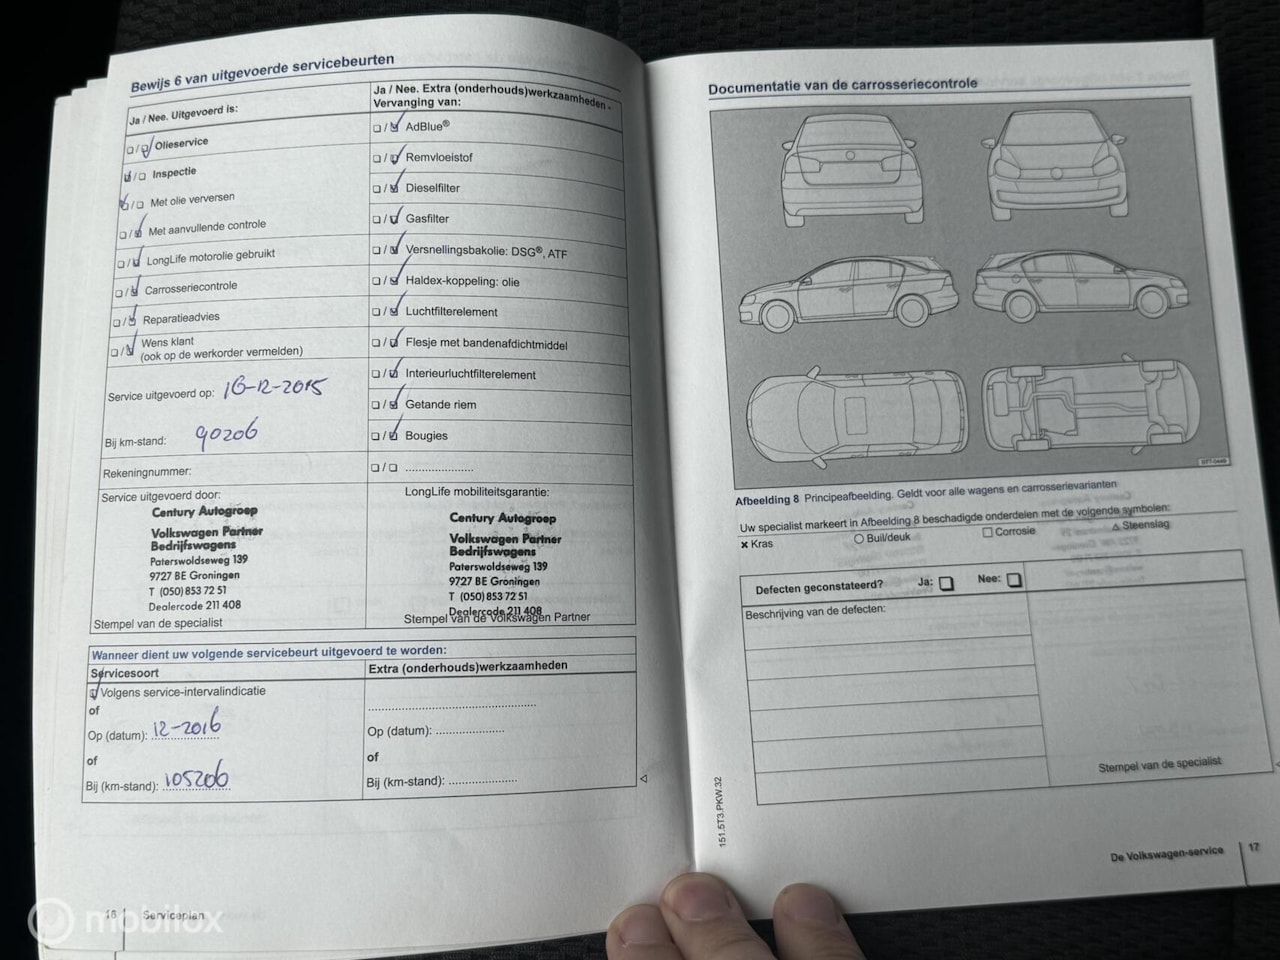 Bewijs 6 van uitgevoerde servicebeurten
Ja / Nee. Uitgevoerd is:
Olieservice
Inspectie
Met olie verversen
Met aanvullende controle
LongLife motorolie gebruikt
Carrosseriecontrole
Reparatieadvies
Wens klant
(ook op de werkorder vermelden)
Service uitgevoerd op: 16-12-2015
Bij km-stand: 90206
Rekeningnummer:
Service uitgevoerd door:
Century Autogroep
Volkswagen Partner
Bedrijfswagens
Paterswoldseweg 139
9727 BE Groningen
T (050) 853 72 51
Dealercode 211 408
Stempel van de specialist
Ja / Nee. Extra (onderhouds)werkzaamheden -
Vervanging van:
AdBlue®
Remvloeistof
Dieselfilter
Gasfilter
Versnellingsbakolie: DSG®, ATF
Haldex-koppeling: olie
Luchtfilterelement
Flesje met bandenafdichtmiddel
Interieurluchtfilterelement
Getande riem
Bougies
LongLife mobiliteitsgarantie:
Century Autogroep
Volkswagen Partner
Bedrijfswagens
Paterswoldseweg 139
9727 BE Groningen
T (050) 853 72 51
Dealercode 211 408
Stempel van de Volkswagen Partner
Wanneer dient uw volgende servicebeurt uitgevoerd te worden:
Servicesoort
Volgens service-intervalindicatie
of
Op (datum): 12-2016
of
Bij (km-stand): 105206
Extra (onderhouds)werkzaamheden
Op (datum):
of
Bij (km-stand):
16 Serviceplan
mobilox
Documentatie van de carrosseriecontrole
Afbeelding 8 Principeafbeelding. Geldt voor alle wagens en carrosserievarianten
Uw specialist markeert in Afbeelding 8 beschadigde onderdelen met de volgende symbolen:
Kras
Buil/deuk
Corrosie
Steenslag
Defecten geconstateerd? Ja: Nee:
Beschrijving van de defecten:
Stempel van de specialist
151.5T3.PKW.32
De Volkswagen-service 17